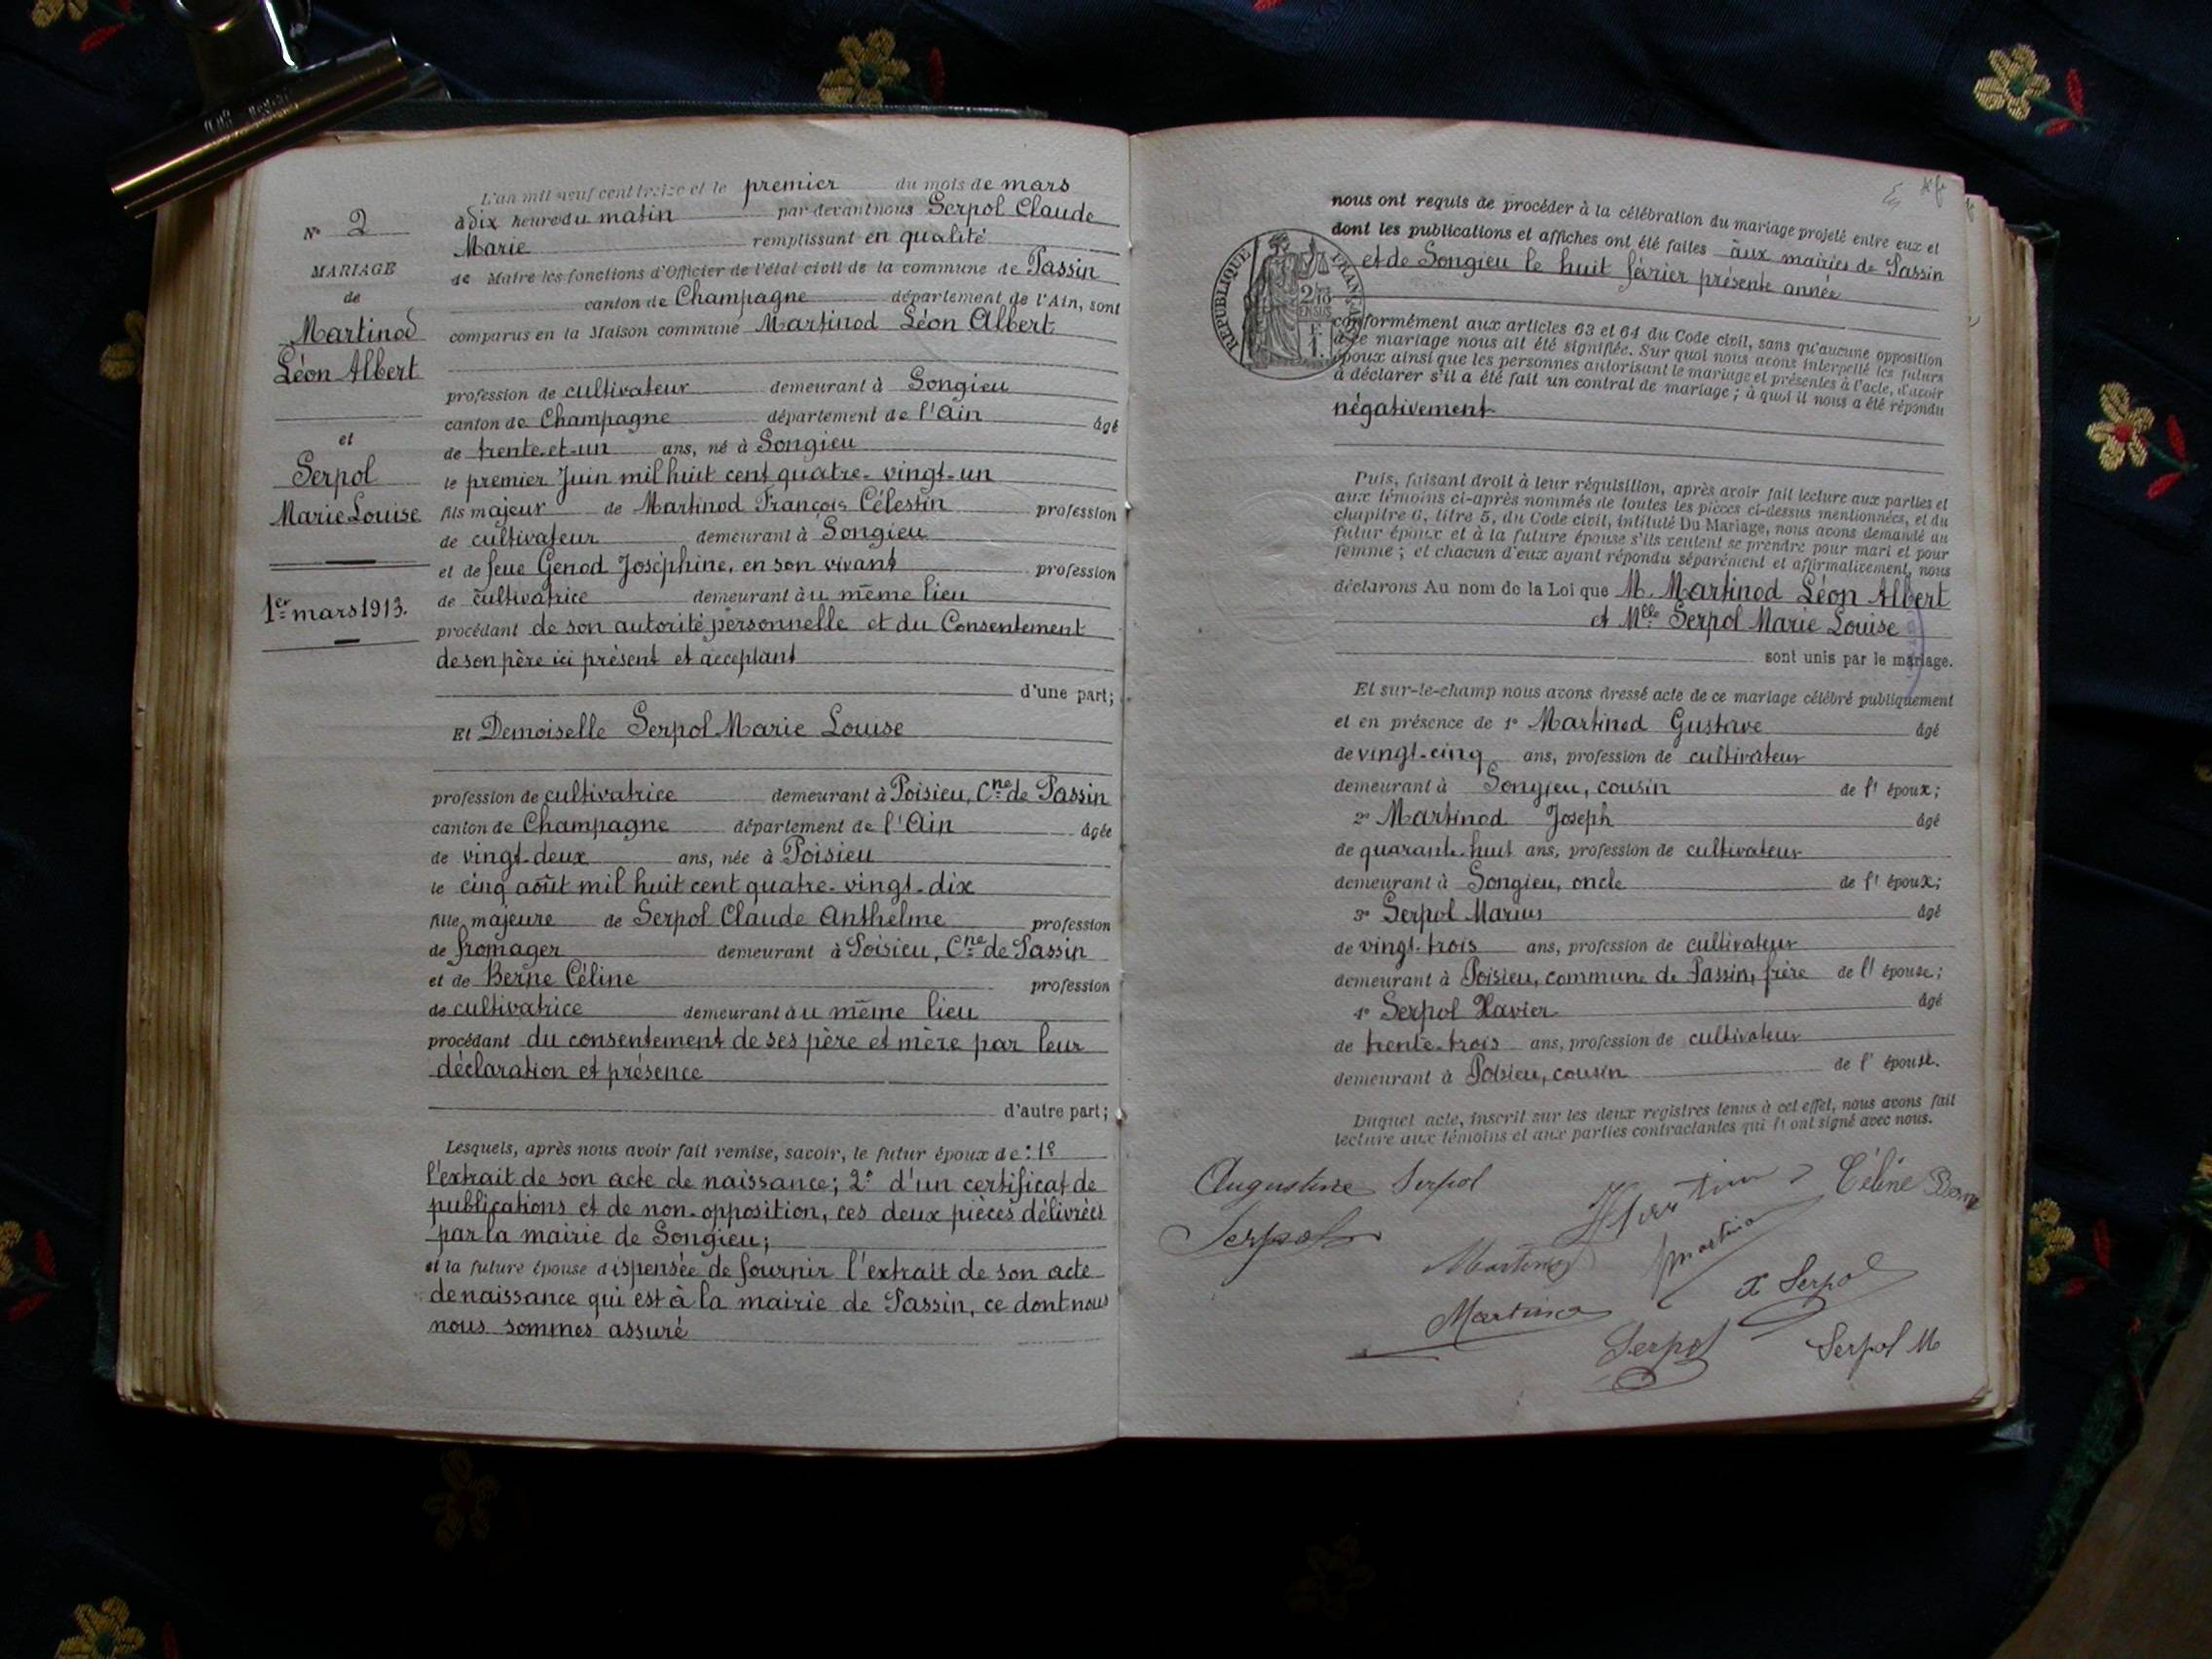 L'an mil neuf cent treize et le premier du mois de mars
à dix heure du matin par devant nous Serpol Claude
Marie remplissant en qualité
de Maire les fonctions d'Officier de l'état civil de la commune de Passin
canton de Champagne département de l'Ain, sont
comparus en la Maison commune Martinod Léon Albert
profession de cultivateur demeurant à Songieu
canton de Champagne département de l'Ain âgé
de trente-et-un ans, né à Songieu
le premier Juin mil huit cent quatre-vingt-un
fils majeur de Martinod François Célestin profession
de cultivateur demeurant à Songieu
et de feue Genod Joséphine, en son vivant profession
de cultivatrice demeurant au même lieu
procédant de son autorité personnelle et du Consentement
de son père ici présent et acceptant
d'une part;
Et Demoiselle Serpol Marie Louise
profession de cultivatrice demeurant à Poisieu, Cne de Passin
canton de Champagne département de l'Ain âgée
de vingt-deux ans, née à Poisieu
le cinq août mil huit cent quatre-vingt-dix
fille majeure de Serpol Claude Anthelme profession
de fromager demeurant à Poisieu, Cne de Passin
et de Berne Céline profession
de cultivatrice demeurant au même lieu
procédant du consentement de ses père et mère par leur
déclaration et présence
d'autre part;
Lesquels, après nous avoir fait remise, savoir, le futur époux de : 1º
l'extrait de son acte de naissance; 2º d'un certificat de
publications et de non-opposition, ces deux pièces délivrées
par la mairie de Songieu;
et la future épouse dispensée de fournir l'extrait de son acte
de naissance qui est à la mairie de Passin, ce dont nous
nous sommes assuré
Nº 2
MARIAGE
de
Martinod
Léon Albert
et
Serpol
Marie Louise
1er mars 1913.
nous ont requis de procéder à la célébration du mariage projeté entre eux et
dont les publications et affiches ont été faites aux mairies de Passin
et de Songieu le huit février présente année
RÉPUBLIQUE FRANÇAISE
2/10
EN SUS
conformément aux articles 63 et 64 du Code civil, sans qu'aucune opposition
à ce mariage nous ait été signifiée. Sur quoi nous avons interpellé les futurs
époux ainsi que les personnes autorisant le mariage et présentes à l'acte, d'avoir
à déclarer s'il a été fait un contrat de mariage ; à quoi il nous a été répondu
négativement
Puis, faisant droit à leur réquisition, après avoir fait lecture aux parties et
aux témoins ci-après nommés de toutes les pièces ci-dessus mentionnées, et du
chapitre 6, titre 5, du Code civil, intitulé Du Mariage, nous avons demandé au
futur époux et à la future épouse s'ils veulent se prendre pour mari et pour
femme ; et chacun d'eux ayant répondu séparément et affirmativement, nous
déclarons Au nom de la Loi que M. Martinod Léon Albert
et Mlle Serpol Marie Louise
sont unis par le mariage.
Et sur-le-champ nous avons dressé acte de ce mariage célébré publiquement
et en présence de 1º Martinod Gustave âgé
de vingt-cinq ans, profession de cultivateur
demeurant à Songieu, cousin de l'époux;
2º Martinod Joseph âgé
de quarante-huit ans, profession de cultivateur
demeurant à Songieu, oncle de l'époux;
3º Serpol Marius âgé
de vingt-trois ans, profession de cultivateur
demeurant à Poisieu, commune de Passin, frère de l'épouse;
4º Serpol Xavier âgé
de trente-trois ans, profession de cultivateur
demeurant à Poisieu, cousin de l'épouse.
Duquel acte, inscrit sur les deux registres tenus à cet effet, nous avons fait
lecture aux témoins et aux parties contractantes qui l'ont signé avec nous.
Augustine Serpol
Céline Berne
Serpol
Martinod
X Serpol
Serpol
Serpol M